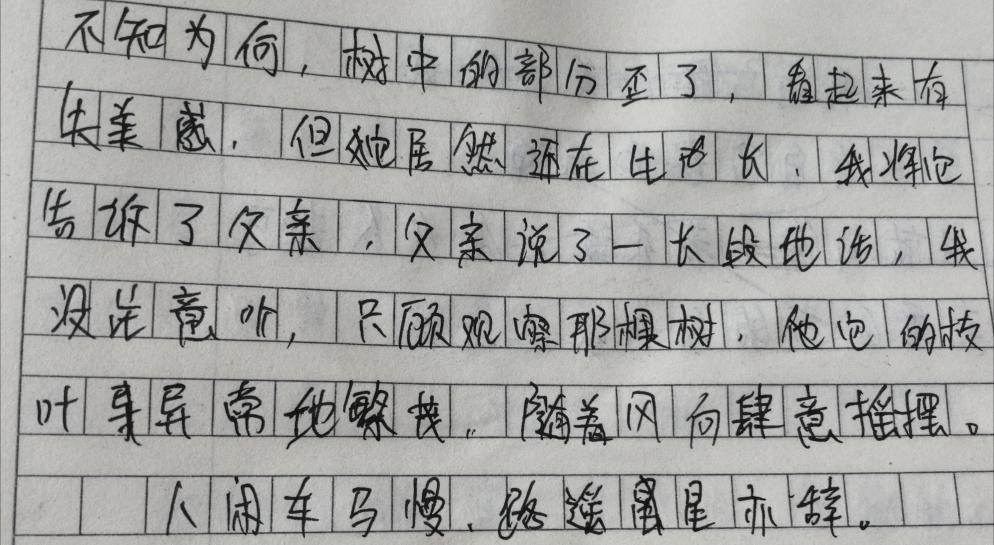 不知为何，树中的部分歪了，看起来有
失美感，但她居然还在生长，我将它
告诉了父亲，父亲说了一长段地话，我
没注意听，只顾观察那棵树，他它的枝
叶异常地繁茂，随着风向肆意摇摆。
人闲车马慢，路遥星亦辞。